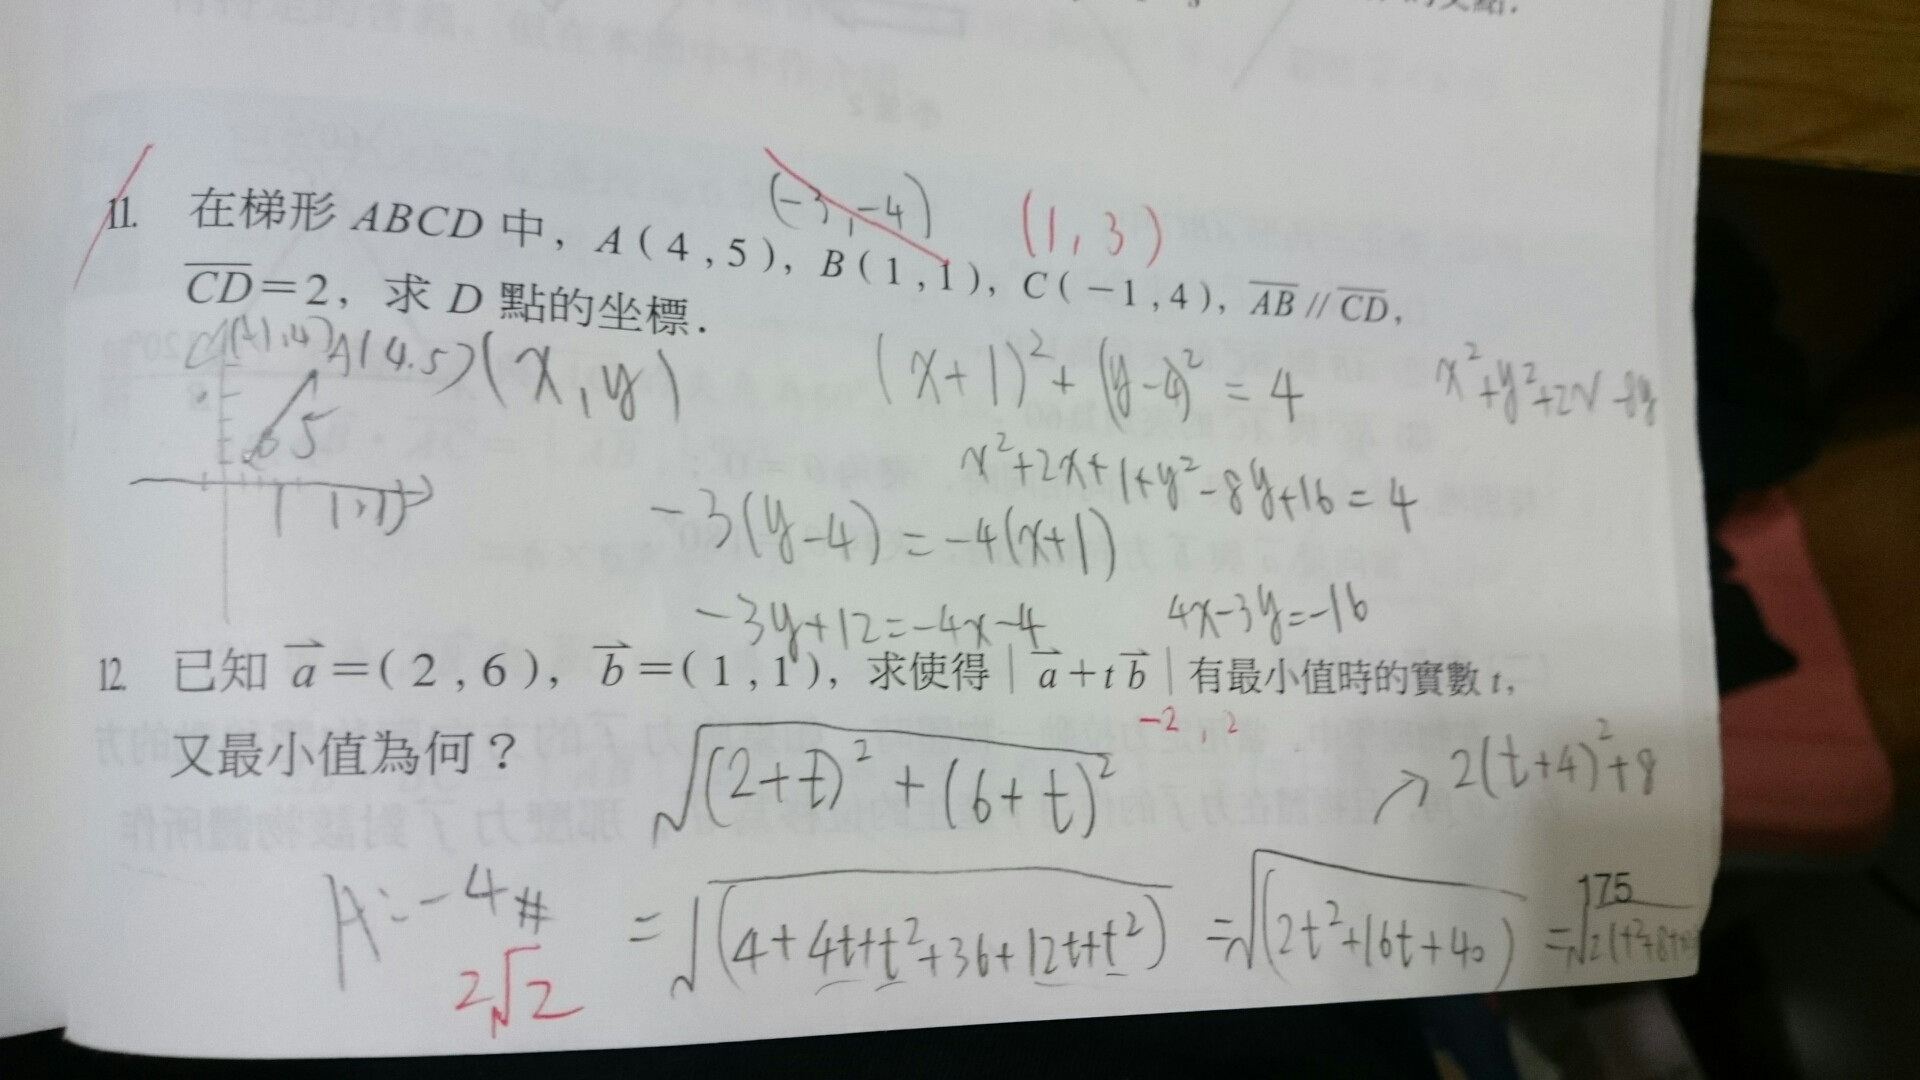 (-3,-4) (1,3)
11. 在梯形 ABCD 中，A(4,5)，B(1,1)，C(-1,4)，AB // CD，
CD=2，求 D 點的坐標．
A(4.5) (x,y) (x+1)²+(y-4)²=4 x²+y²+2x-8y
5 x²+2x+1+y²-8y+16=4
-3(y-4)=-4(x+1)
-3y+12=-4x-4 4x-3y=-16
12. 已知 a=(2,6)，b=(1,1)，求使得 | a+t b | 有最小值時的實數 t，
又最小值為何？
-2,2
√(2+t)²+(6+t)² ↗ 2(t+4)²+8
A:-4#
=√(4+4t+t²+36+12t+t²) =√(2t²+16t+40) =√2(t²+8t
2√2
175